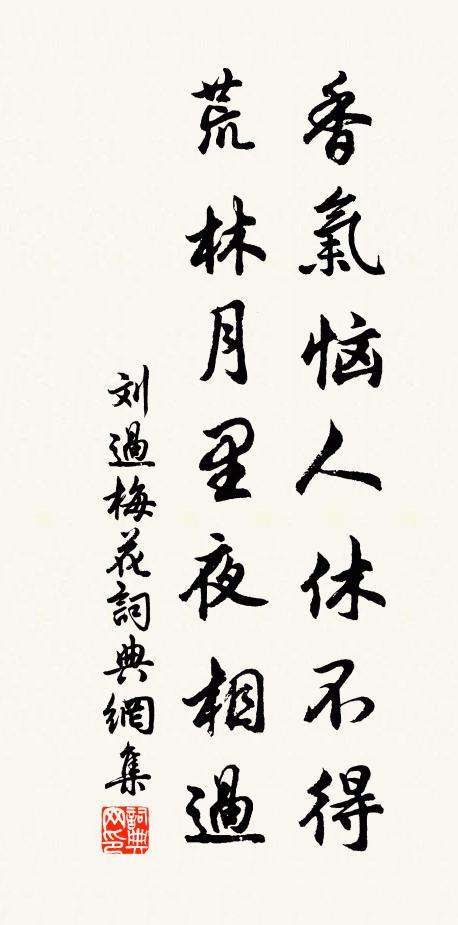 香氣恼人休不得
荒林月里夜相過
刘過梅花詞典網集
詞典网印